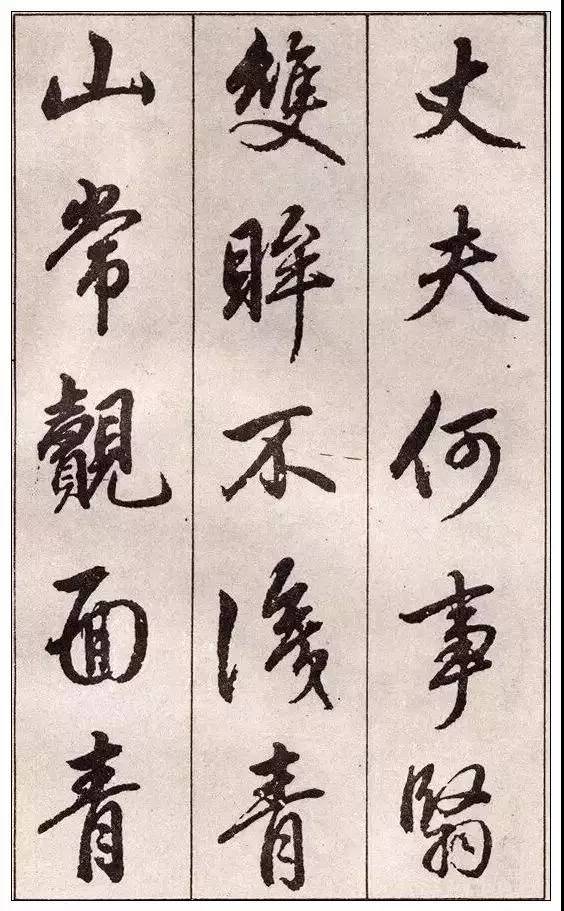 丈夫何事翳
雙眸不復青
山常覿面青